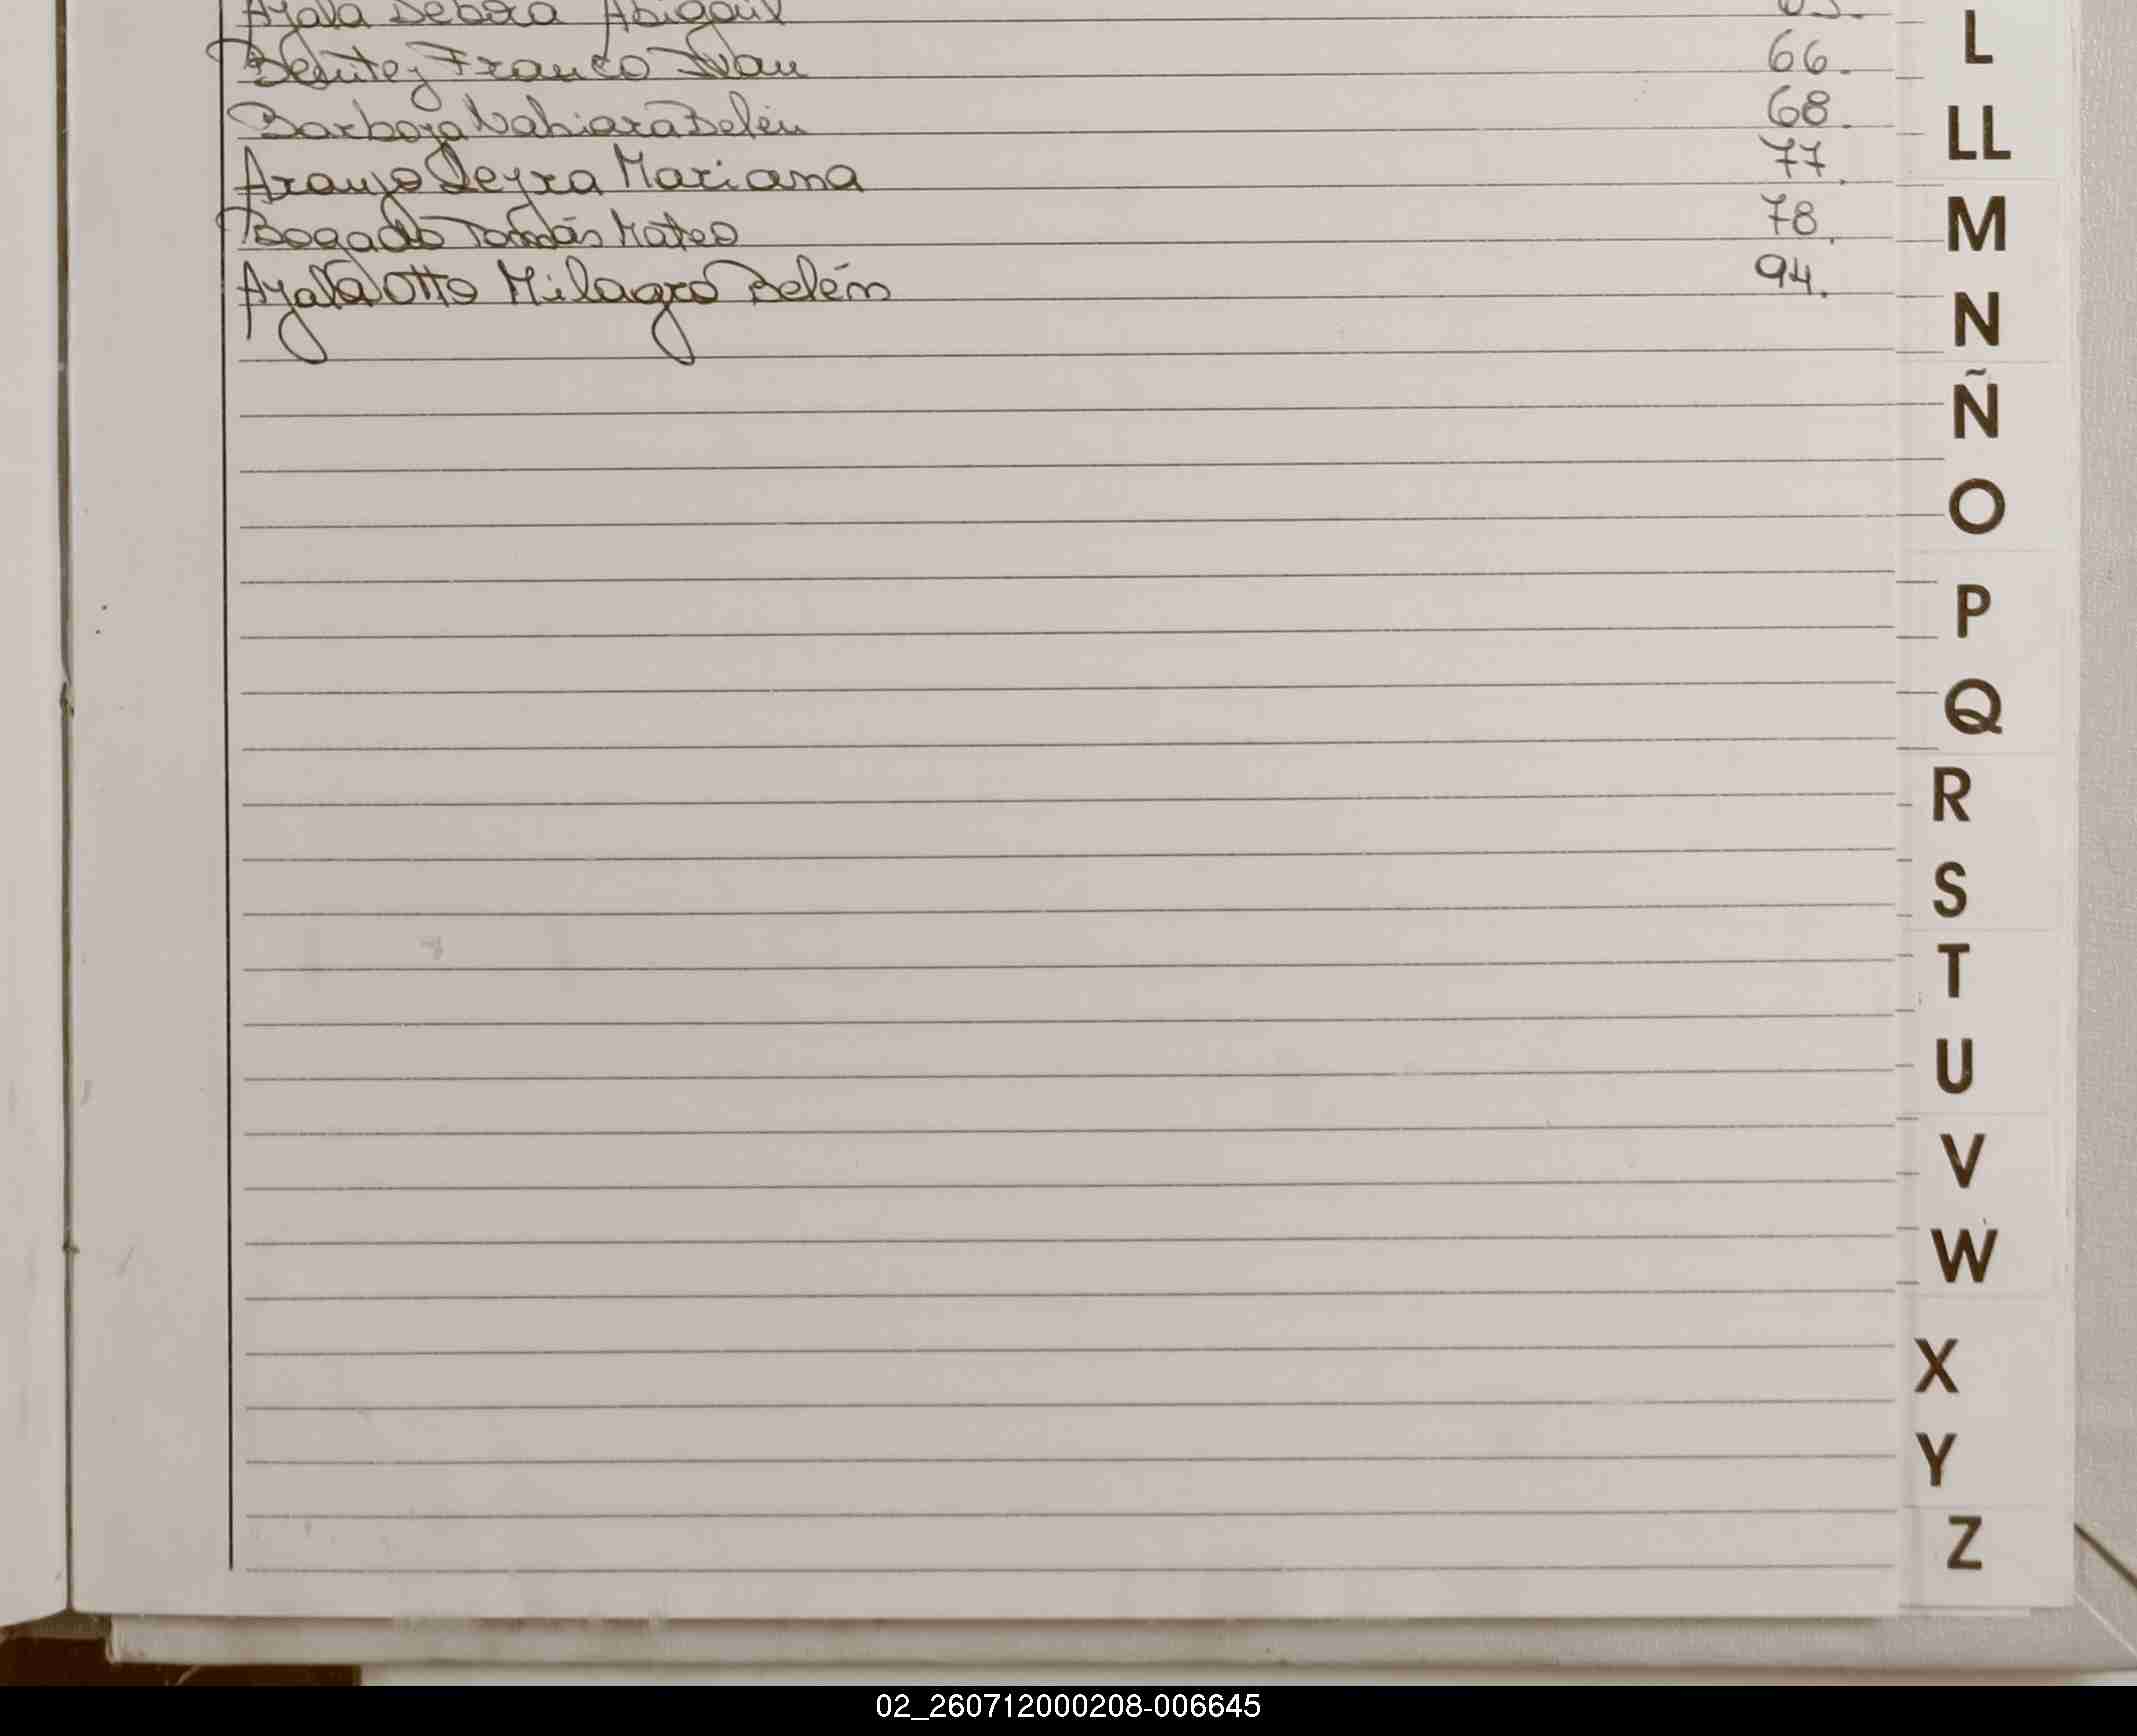 Ayala Debora Abigail 65.
Benitez Franco Ivan 66.
Barboza Nahiara Belén 68.
Araujo Leyra Mariana 77.
Bogado Tomás Mateo 78.
Ayala Otto Milagro Belém 94.
L
LL
M
N
Ñ
O
P
Q
R
S
T
U
V
W
X
Y
Z
02_260712000208-006645